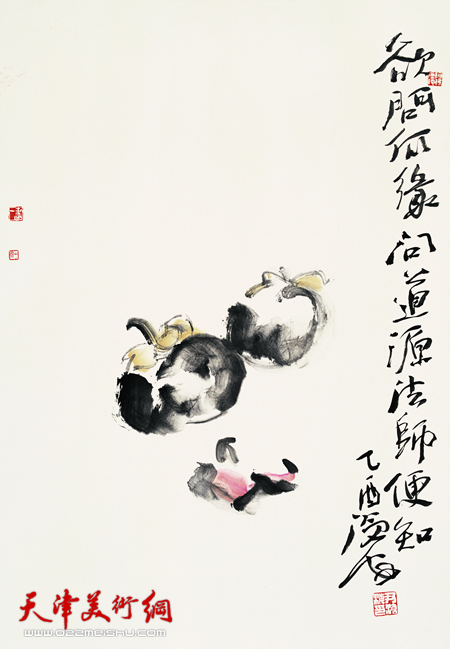 欲問何緣問道源法師便知
乙酉滄海
天津美術網
www.022meishu.com